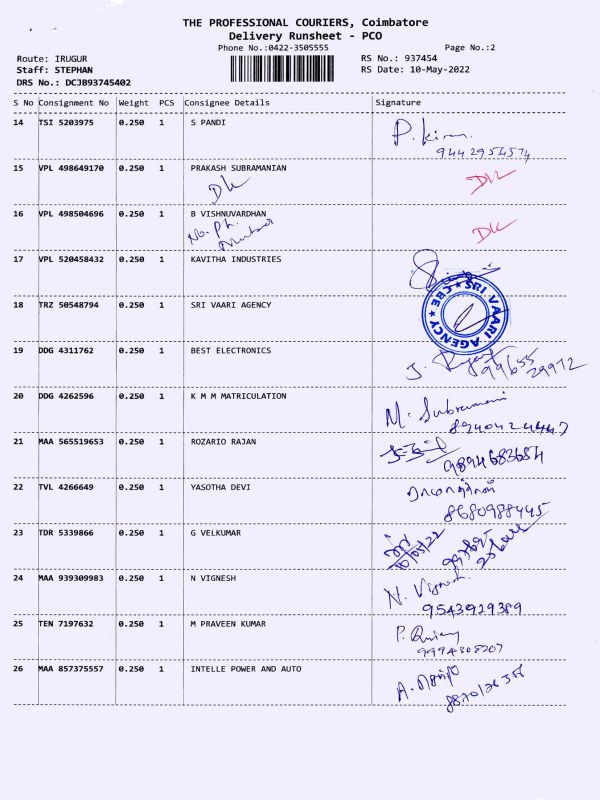 THE PROFESSIONAL COURIERS, Coimbatore
Delivery Runsheet - PCO
Phone No.:0422-3505555 Page No.:2
Route: IRUGUR RS No.: 937454
Staff: STEPHAN RS Date: 10-May-2022
DRS No.: DCJB93745402
S No Consignment No Weight PCS Consignee Details Signature
14 TSI 5203975 0.250 1 S PANDI
P. Kiran
9442954574
15 VPL 498649170 0.250 1 PRAKASH SUBRAMANIAN
DL DL
16 VPL 498504696 0.250 1 B VISHNUVARDHAN
No. Ph. DL
Number
17 VPL 520458432 0.250 1 KAVITHA INDUSTRIES
18 TRZ 50548794 0.250 1 SRI VAARI AGENCY
SRI VAARI AGENCY ★ CBE ★
19 DDG 4311762 0.250 1 BEST ELECTRONICS
99655
29972
20 DDG 4262596 0.250 1 K M M MATRICULATION
M. Subramani
8940424447
21 MAA 565519653 0.250 1 ROZARIO RAJAN
9894683654
22 TVL 4266649 0.250 1 YASOTHA DEVI
8680988445
23 TDR 5339866 0.250 1 G VELKUMAR
10/05/22
24 MAA 939309983 0.250 1 N VIGNESH
N. Vignesh
9543929389
25 TEN 7197632 0.250 1 M PRAVEEN KUMAR
9994308207
26 MAA 857375557 0.250 1 INTELLE POWER AND AUTO